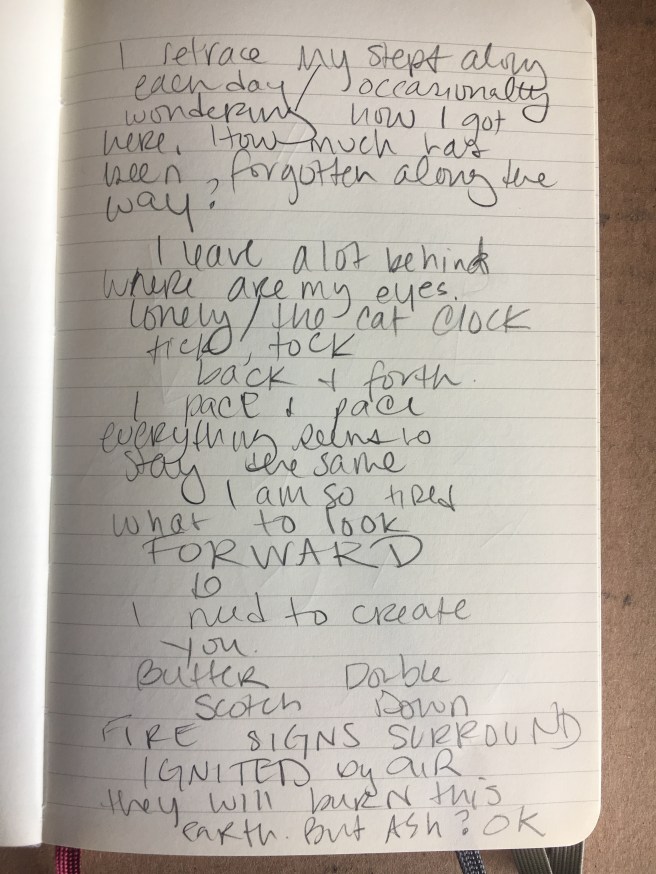 I retrace my steps along
each day / occasionally
wondering how I got
here. How much has
been, forgotten along the
way?
I leave a lot behind
where are my eyes.
lonely / the cat clock
tick, tock
back & forth.
I pace & pace
everything seems to
stay the same
I am so tired
what to look
FORWARD
to
I need to create
you.
Butter Double
Scotch Down
FIRE SIGNS SURROUND
IGNITED by AIR.
they will burn this
earth. But Ash? OK